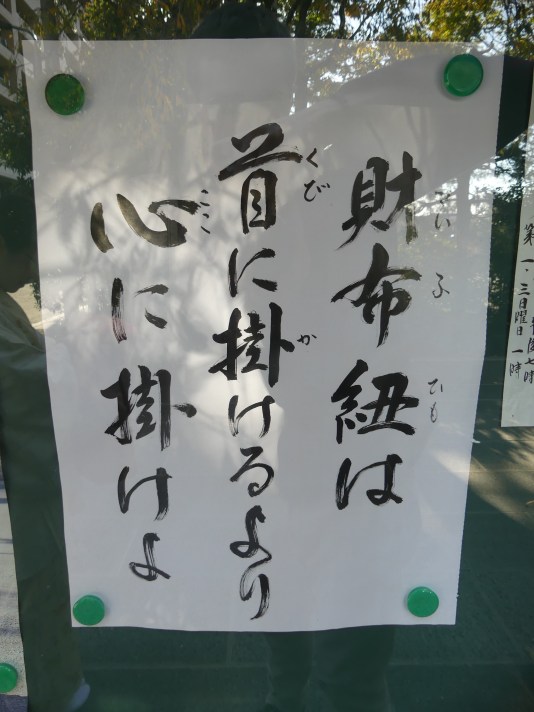 財布紐は
首に掛けるより
心に掛けよ
さいふ
ひも
くび
か
こころ
第一・三日曜日